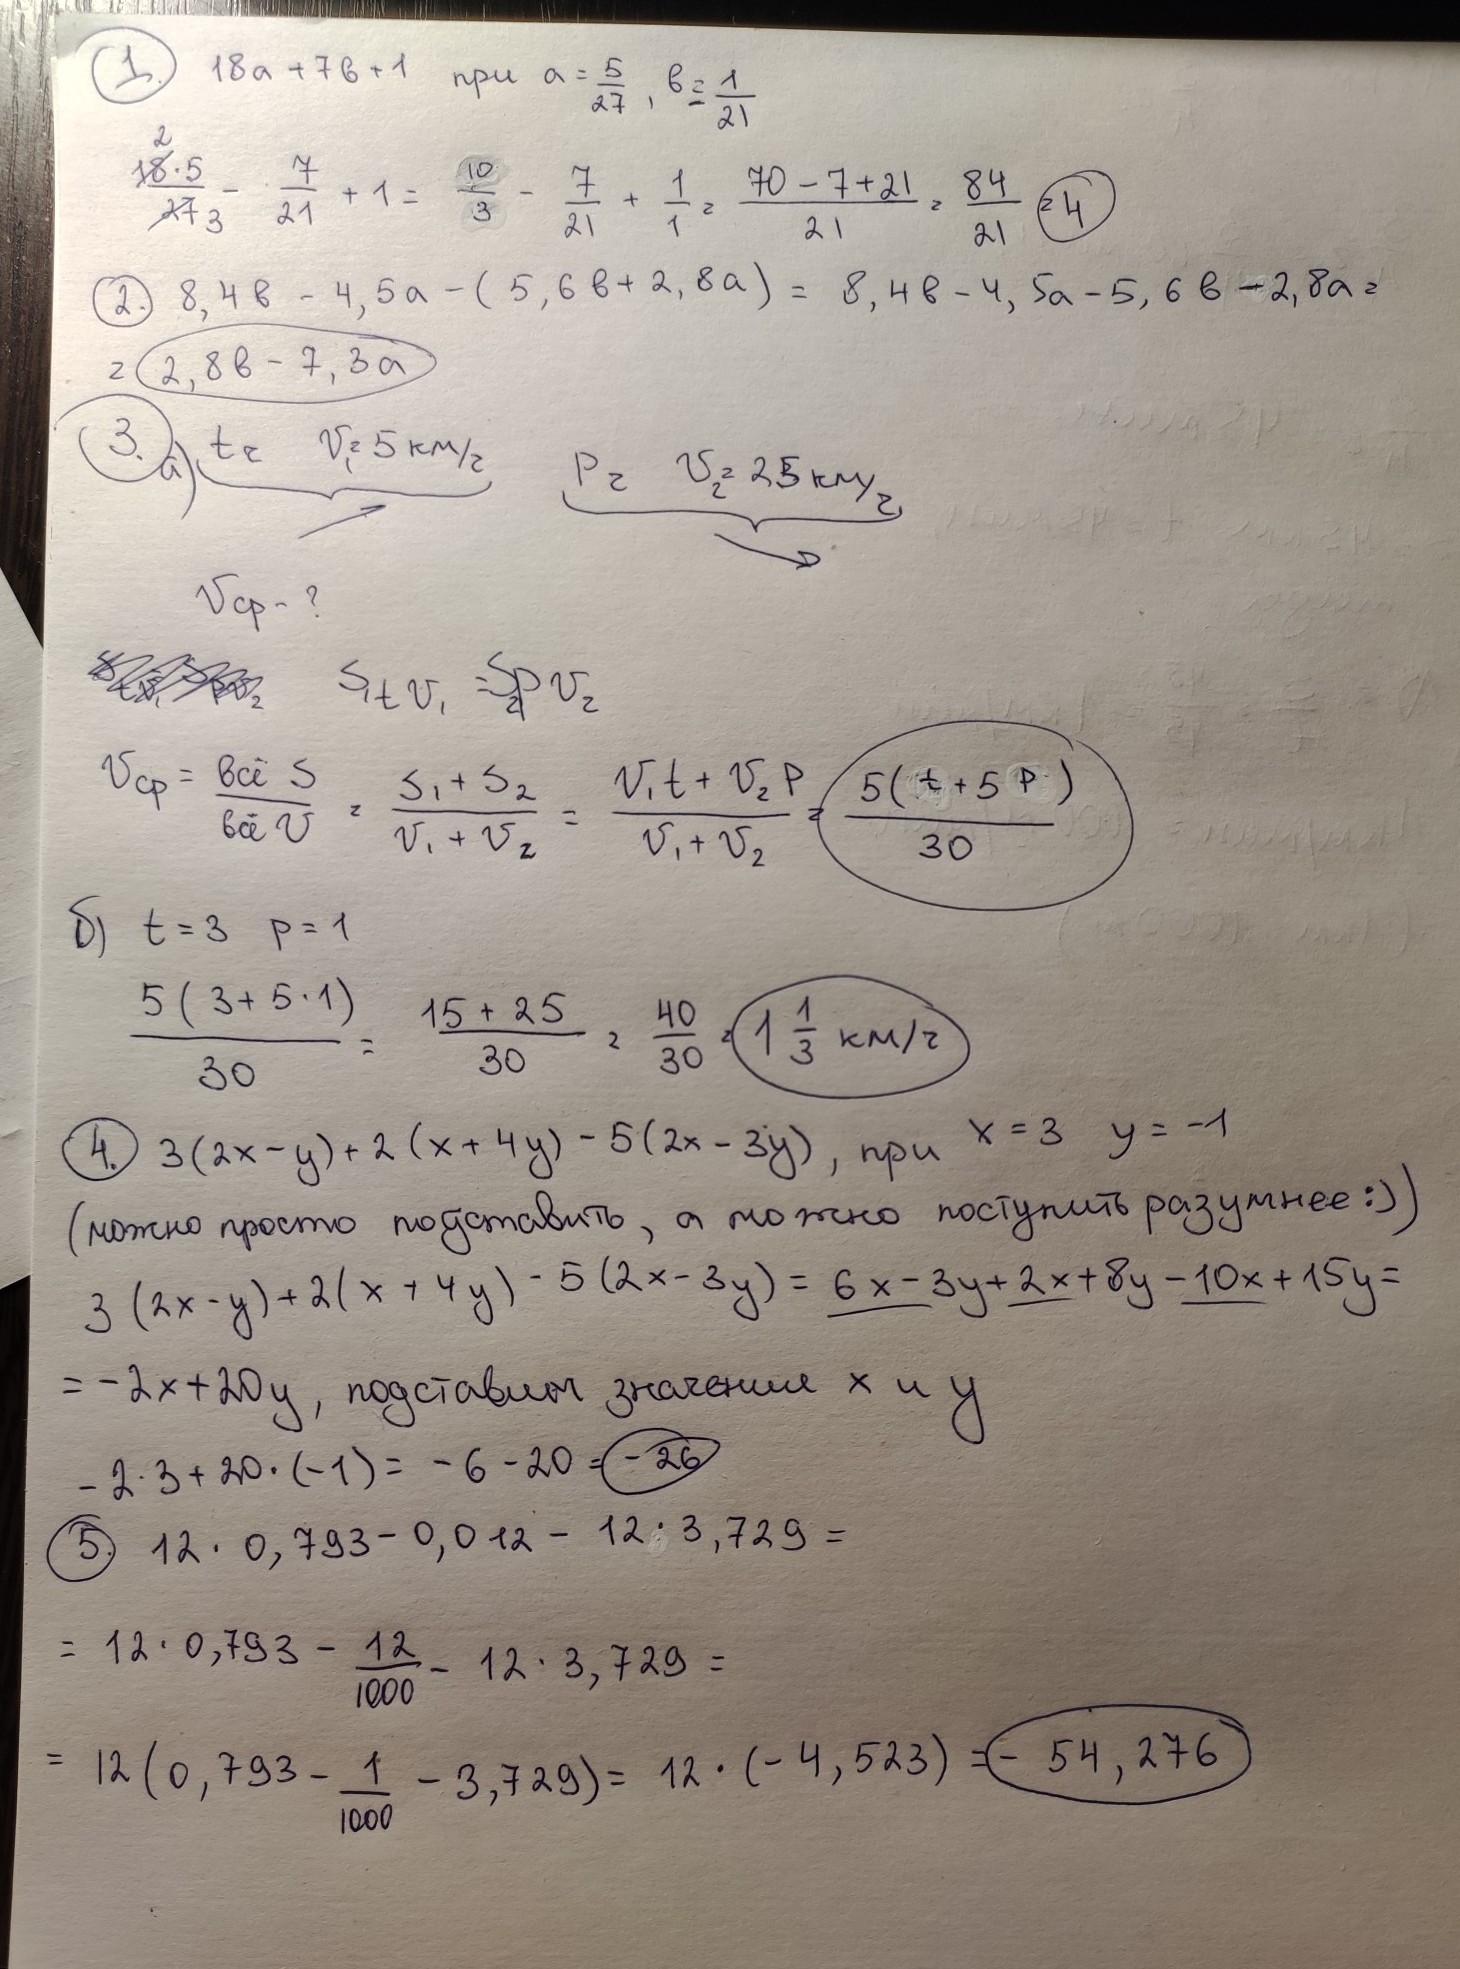 1. 18a+7b+1 при a=5/27, b=1/21
18·5/27 2 3 - 7/21 + 1 = 10/3 - 7/21 + 1/1 = 70-7+21/21 = 84/21 = 4
2. 8,4b - 4,5a - (5,6b+2,8a) = 8,4b-4,5a-5,6b-2,8a=
= 2,8b-7,3a
3. а) t ч V₁=5 км/ч p ч V₂=25 км/ч
Vср-?
S₁ t V₁ = S₂ p V₂
Vср = всё S/всё V = S₁+S₂/V₁+V₂ = V₁t+V₂p/V₁+V₂ = 5(t+5p)/30
б) t=3 p=1
5(3+5·1)/30 = 15+25/30 = 40/30 = 1 1/3 км/ч
4. 3(2x-y)+2(x+4y)-5(2x-3y), при x=3 y=-1
(можно просто подставить, а можно поступить разумнее:))
3(2x-y)+2(x+4y)-5(2x-3y)=6x-3y+2x+8y-10x+15y=
=-2x+20y, подставим значения x и y
-2·3+20·(-1)=-6-20=-26
5. 12·0,793-0,012-12·3,729=
=12·0,793-12/1000-12·3,729=
=12(0,793-1/1000-3,729)=12·(-4,523)=-54,276